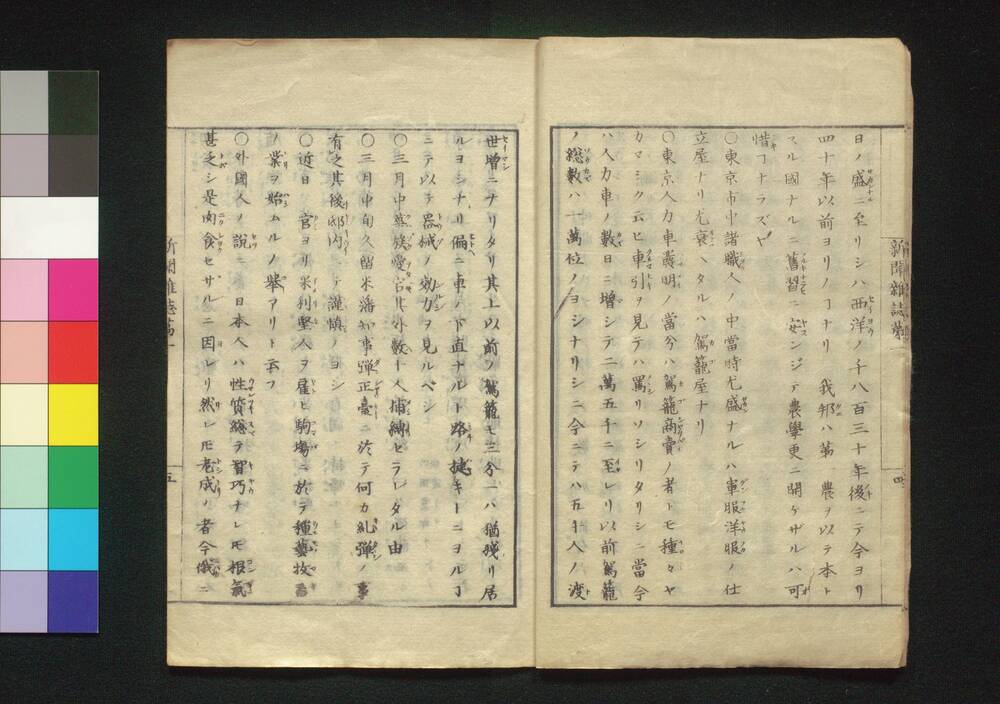 日ノ盛ニ至リシハ西洋ノ千八百三十年後ニテ今ヨリ
四十年以前ヨリノヿナリ我邦ハ第農ヲ以テ本ト
スル國ナルニ舊習ニ安ンジテ農學更ニ開ケザルハ可
惜ヿナラズヤ
〇東京市中諸職人ノ中當時尤盛ナルハ軍服洋服ノ仕
立屋ナリ尤衰ヘタルハ駕籠屋ナリ
〇東京人力車發明ノ當分ハ駕籠商賣ノ者トモ種々ヤ
カマシク云ヒ車引ヲ見テハ罵リソシリタリシニ當今
ハ人力車ノ數日ニ增シテ二萬五千ニ至レリ以前駕籠
ノ總數ハ一萬位ノヨシナリシニ今ニテハ五千人ノ渡
新聞雜誌第一
四
世增ニナリタリ其上以前ノ駕籠モ三分一ハ猶殘リ居
ルヨシナリ偏ニ車ノ下直ナルト路ノ捷キトニヨルヿ
ニテ以テ器械ノ効力ヲ見ルベシ
〇三月中華族愛宕其外數十人捕縛セラレタル由
〇三月中旬久留米藩知事彈正臺ニ於テ何カ糺彈ノ事
有之其後邸内ニテ謹愼ノヨシ
〇近日官ヨリ米利堅人ヲ雇ヒ駒場ニ於テ種藝牧畜
ノ業ヲ始ムルノ擧アリト云フ
〇外國人ノ說ニ日本人ハ性質總テ智巧ナレモ根氣
甚乏シ是肉食セザルニ因レリ然レモ老成ノ者今俄ニ
新聞雜誌第一
五